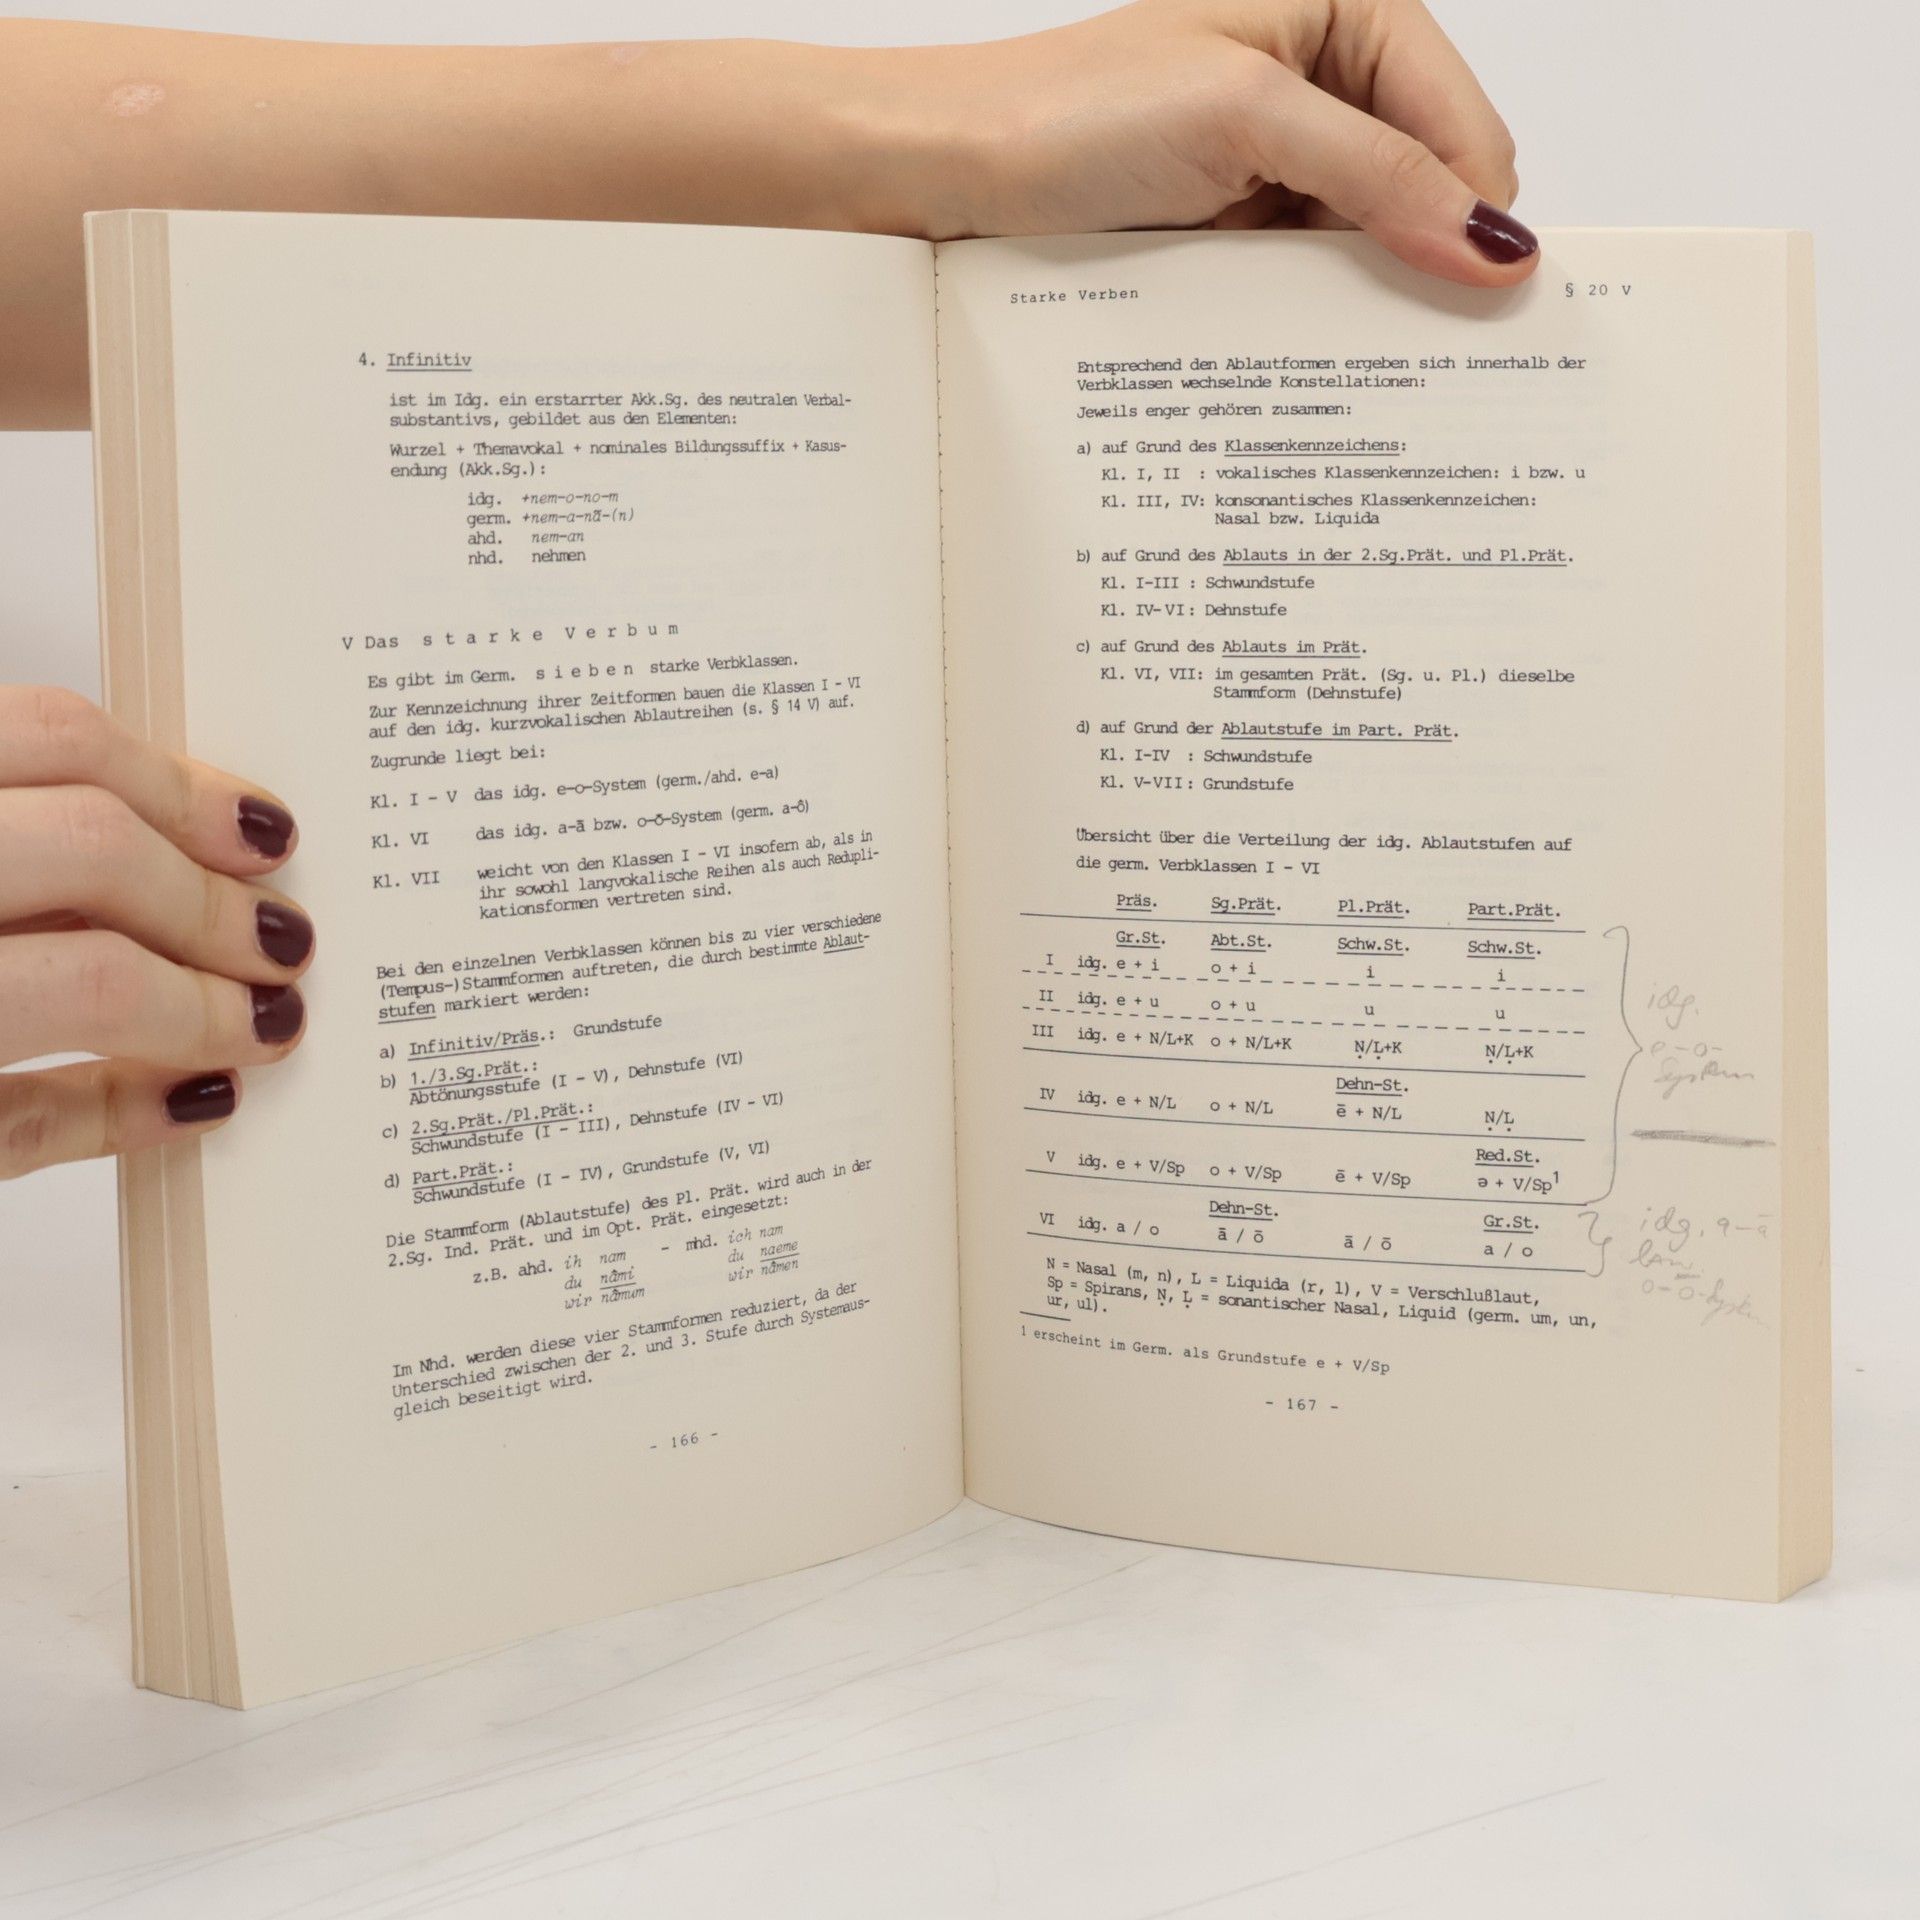 4. Infinitiv
ist im Idg. ein erstarrter Akk.Sg. des neutralen Verbal-
substantivs, gebildet aus den Elementen:
Wurzel + Themavokal + nominales Bildungssuffix + Kasus-
endung (Akk.Sg.):
idg. +nem-o-no-m
germ. +nem-a-nā-(n)
ahd. nem-an
nhd. nehmen
V Das s t a r k e V e r b u m
Es gibt im Germ. s i e b e n starke Verbklassen.
Zur Kennzeichnung ihrer Zeitformen bauen die Klassen I - VI
auf den idg. kurzvokalischen Ablautreihen (s. § 14 V) auf.
Zugrunde liegt bei:
Kl. I - V das idg. e-o-System (germ./ahd. e-a)
Kl. VI das idg. a-ā bzw. o-ō-System (germ. a-ô)
Kl. VII weicht von den Klassen I - VI insofern ab, als in
ihr sowohl langvokalische Reihen als auch Redupli-
kationsformen vertreten sind.
Bei den einzelnen Verbklassen können bis zu vier verschiedene
(Tempus-)Stammformen auftreten, die durch bestimmte Ablaut-
stufen markiert werden:
a) Infinitiv/Präs.: Grundstufe
b) 1./3.Sg.Prät.:
Abtönungsstufe (I - V), Dehnstufe (VI)
c) 2.Sg.Prät./Pl.Prät.:
Schwundstufe (I - III), Dehnstufe (IV - VI)
d) Part.Prät.:
Schwundstufe (I - IV), Grundstufe (V, VI)
Die Stammform (Ablautstufe) des Pl. Prät. wird auch in der
2.Sg. Ind. Prät. und im Opt. Prät. eingesetzt:
z.B. ahd. ih nam - mhd. ich nam
du nâmi du naeme
wir nâmum wir nâmen
Im Nhd. werden diese vier Stammformen reduziert, da der
Unterschied zwischen der 2. und 3. Stufe durch Systemaus-
gleich beseitigt wird.
- 166 -
Starke Verben § 20 V
Entsprechend den Ablautformen ergeben sich innerhalb der
Verbklassen wechselnde Konstellationen:
Jeweils enger gehören zusammen:
a) auf Grund des Klassenkennzeichens:
Kl. I, II : vokalisches Klassenkennzeichen: i bzw. u
Kl. III, IV: konsonantisches Klassenkennzeichen:
Nasal bzw. Liquida
b) auf Grund des Ablauts in der 2.Sg.Prät. und Pl.Prät.
Kl. I-III : Schwundstufe
Kl. IV-VI: Dehnstufe
c) auf Grund des Ablauts im Prät.
Kl. VI, VII: im gesamten Prät. (Sg. u. Pl.) dieselbe
Stammform (Dehnstufe)
d) auf Grund der Ablautstufe im Part. Prät.
Kl. I-IV : Schwundstufe
Kl. V-VII: Grundstufe
Übersicht über die Verteilung der idg. Ablautstufen auf
die germ. Verbklassen I - VI
Präs. Sg.Prät. Pl.Prät. Part.Prät.
Gr.St. Abt.St. Schw.St. Schw.St.
I idg. e + i o + i i i
II idg. e + u o + u u u
III idg. e + N/L+K o + N/L+K Ṇ/Ḷ+K Ṇ/Ḷ+K
Dehn-St.
IV idg. e + N/L o + N/L ē + N/L Ṇ/Ḷ
Red.St.
V idg. e + V/Sp o + V/Sp ē + V/Sp ə + V/Sp1
Dehn-St. Gr.St.
VI idg. a / o ā / ō ā / ō a / o
N = Nasal (m, n), L = Liquida (r, l), V = Verschlußlaut,
Sp = Spirans, Ṇ, Ḷ = sonantischer Nasal, Liquid (germ. um, un,
ur, ul).
1 erscheint im Germ. als Grundstufe e + V/Sp
- 167 -
idg.
e-o-
System
idg. a-ā
bzw.
o-ō-System